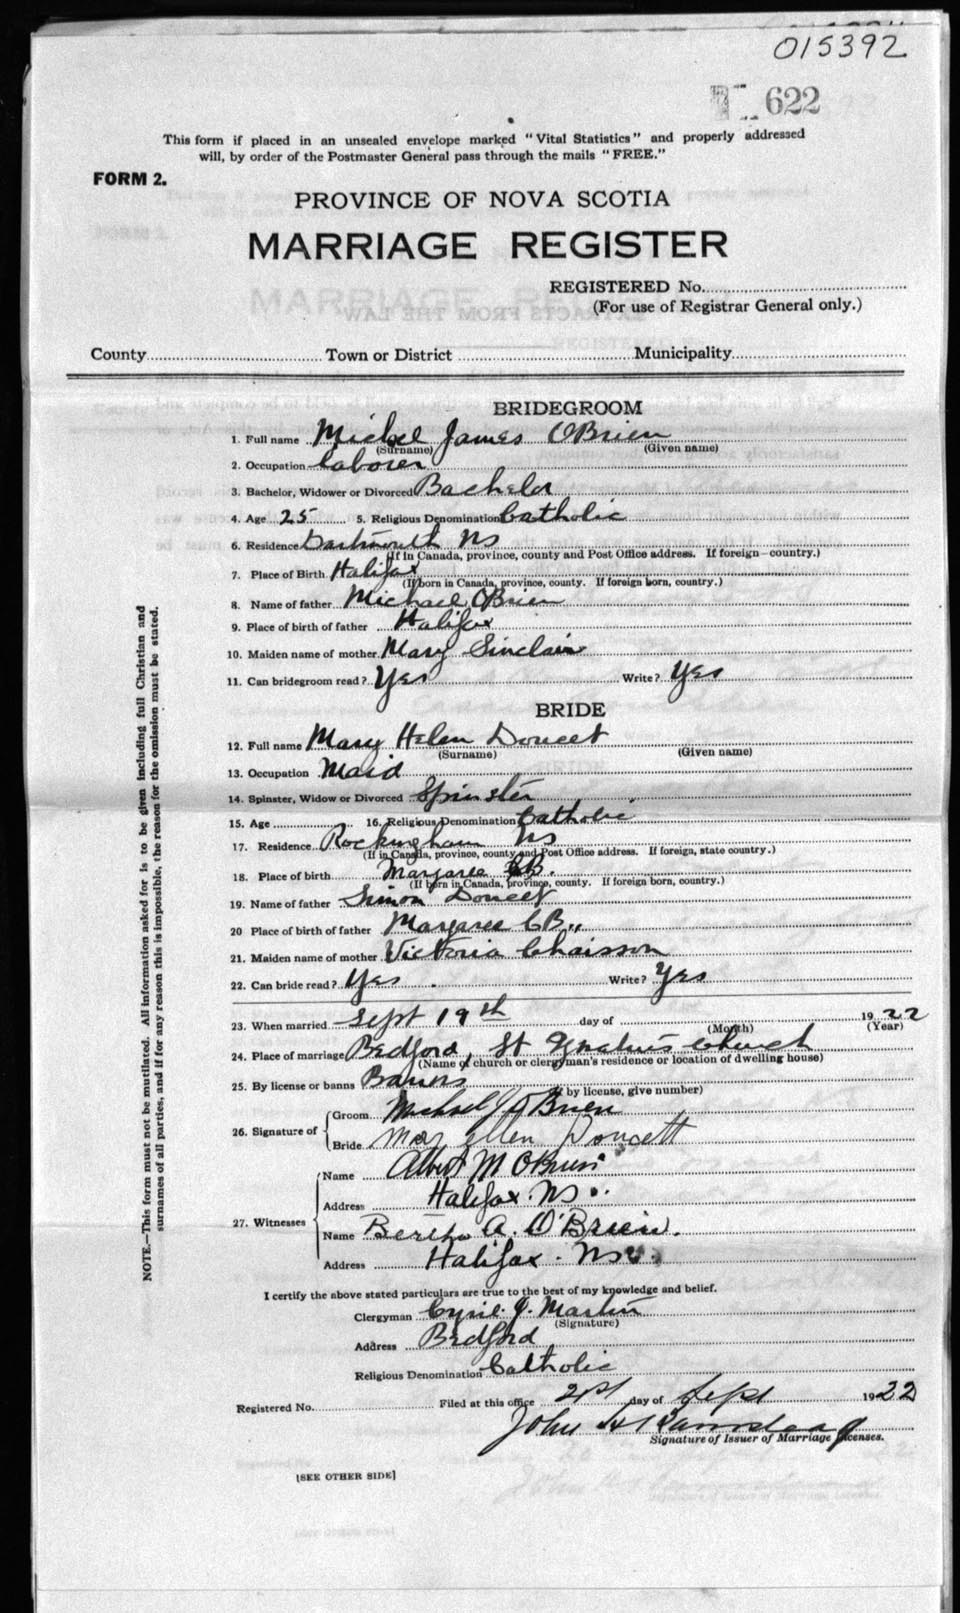 015392
622
This form if placed in an unsealed envelope marked "Vital Statistics" and properly addressed
will, by order of the Postmaster General pass through the mails "FREE."
FORM 2.
PROVINCE OF NOVA SCOTIA
MARRIAGE REGISTER
REGISTERED No.
(For use of Registrar General only.)
County Town or District Municipality
BRIDEGROOM
1. Full name Michel James O'Brien
(Surname) (Given name)
2. Occupation Laborer
3. Bachelor, Widower or Divorced Bachelor
4. Age 25 5. Religious Denomination Catholic
6. Residence Dartmouth NS
(If in Canada, province, county and Post Office address. If foreign—country.)
7. Place of Birth Halifax
(If born in Canada, province, county. If foreign born, country.)
8. Name of father Michael O'Brien
9. Place of birth of father Halifax
10. Maiden name of mother Mary Sinclair
11. Can bridegroom read? Yes Write? Yes
BRIDE
12. Full name Mary Helen Doucet
(Surname) (Given name)
13. Occupation Maid
14. Spinster, Widow or Divorced Spinster
15. Age 16. Religious Denomination Catholic
17. Residence Rockingham NS
(If in Canada, province, county and Post Office address. If foreign, state country.)
18. Place of birth Margaree CB.
(If born in Canada, province, county. If foreign born, country.)
19. Name of father Simon Doucet
20 Place of birth of father Margaree CB.,
21. Maiden name of mother Victoria Chaisson
22. Can bride read? Yes Write? Yes
23. When married Sept 19th day of 1922
(Month) (Year)
24. Place of marriage Bedford, St Ignatius Church
(Name of church or clergyman's residence or location of dwelling house)
25. By license or banns Banns
(If by license, give number)
26. Signature of
Groom Michael J O'Brien
Bride Mary Ellen Doucett
27. Witnesses
Name Albert M O'Brien
Address Halifax. NS.
Name Bertha A. O'Brien.
Address Halifax. NS.
I certify the above stated particulars are true to the best of my knowledge and belief.
Clergyman Cyril J. Martin
(Signature)
Address Bedford
Religious Denomination Catholic
Registered No. Filed at this office 21st day of Sept 1922
John H
Signature of Issuer of Marriage Licenses.
[SEE OTHER SIDE]
NOTE.—This form must not be mutilated. All information asked for is to be given including full Christian and
surnames of all parties, and if for any reason this is impossible, the reason for the omission must be stated.